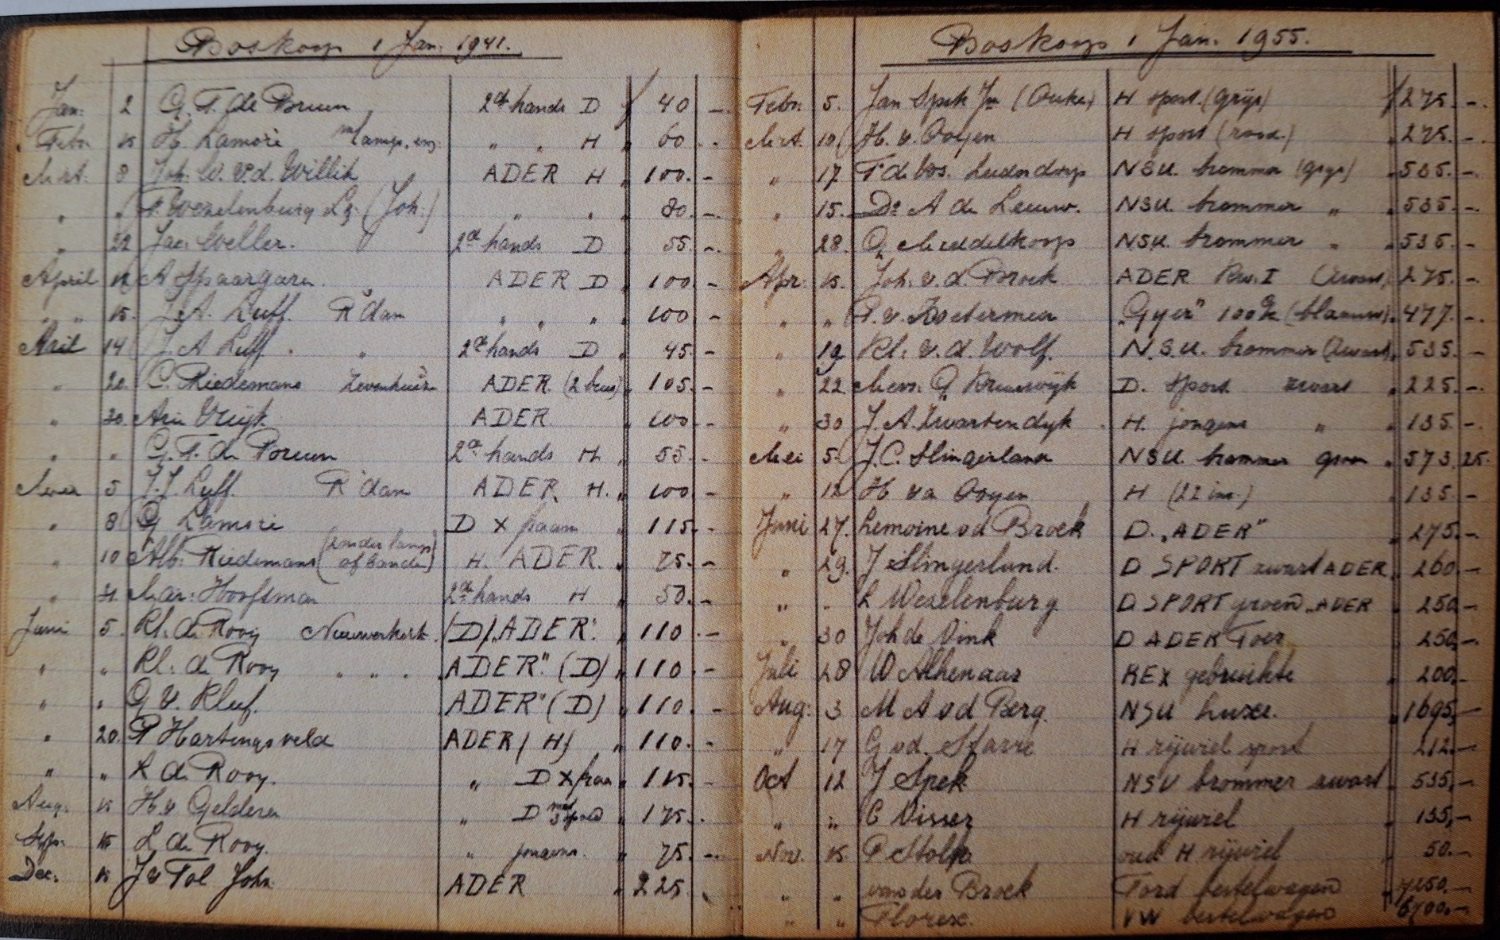 Boskoop 1 Jan. 1941.
Jan. 2 G. T. de Bruin 2de hands D f 40 -
Febr. 15 H. Lamoré lamp, enz. " " H " 60 -
Mrt. 8 Joh. W. v.d. Willik ADER H " 100 -
" " Wezelenburg Lz. (Joh.) " " " 80 -
" 22 Jac. Weller. 2de hands D " 55 -
April A Spaargaren ADER D " 100 -
" " 15. J. A. Luff. R'dam " " " 100 -
April 14 J. A Luff. " 2de hands D " 45 -
" 20 C. Riedemans Zevenhuizen ADER (2 bus) " 105 -
" 30 Arie Vuijk ADER " 100 -
" " G. T. de Bruin 2de hands H. " 55 -
Mei 5 Luff. R'dam ADER. H. " 100 -
" 8 G Lamoré D X fraam " 115 -
" 10 Alb. Riedemans (zonder lamp of banden) H. ADER. " 75 -
" Mar. Hoofsman 2de hands H " 50 -
Juni 5. Kl. de Rooy Nieuwerkerk. (D) "ADER". " 110 -
" " Kl. de Rooy " " " ADER" (D) " 110 -
" " G v. Kleef. ADER" (D) " 110 -
" 20 P Hartingsveld ADER (H) " 110 -
" " K de Rooy. " D X fraa " 115 -
Aug. 15 H v Gelderen " D met " 175 -
Sept. 15 L de Rooy. " jongens. " 75 -
Dec. 15 J v Tol Joh. ADER " 225 -
Boskoop 1 Jan. 1955.
Febr. 5. Jan Spek Jz (Ouke) H sport. (grijs) f 275. -
Mrt. 10 H. v. Ooyen H sport (rood.) " 275. -
" 17. T de Vos. Leiderdorp NSU. brommer (grijs) " 535. -
" 15. Dr A de Leeuw. NSU. brommer " " 535. -
" 28. G. Middelkoop NSU. brommer " " 535. -
Apr. 15. Joh. v. d. Broek ADER (zwart) " 275. -
" " v. Zoetermeer "Gyer" 100% (blauw) " 477. -
" 19 Kl. v. d. Wolf. N.S.U. brommer (zwart) " 535. -
" 22 Mevr. G Kruiswijk D. sport zwart " 225. -
" 30 J. A. Zwartendijk H. jongens " " 135. -
Mei 5. J. C. Slingerland NSU. brommer groen " 573 25.
" 12 H va Ooyen H (22 inc.) " 135. -
Juni 27. Lemoine vd Broek D. "ADER" " 275. -
" 29. J Slingerland. D SPORT zwart ADER " 260. -
" - L Wezelenburg D SPORT groen "ADER " 250. -
" 30 Joh de Vink D ADER Toer " 250. -
Juli 28 W Alkenaar REX gebruikte " 200. -
Aug. 3 M A vd Berg. NSU Luxe. " 1695. -
" 17 G vd. Starre H rijwiel sport " 212. -
Oct 12 J Spek NSU brommer zwart " 535. -
" " C Visser H rijwiel " 135. -
Nov. 15 P Stolk oud H rijwiel " 50. -
" " van der Broek Ford bestelwagen " 4250. -
" " Florex. VW bestelwagen